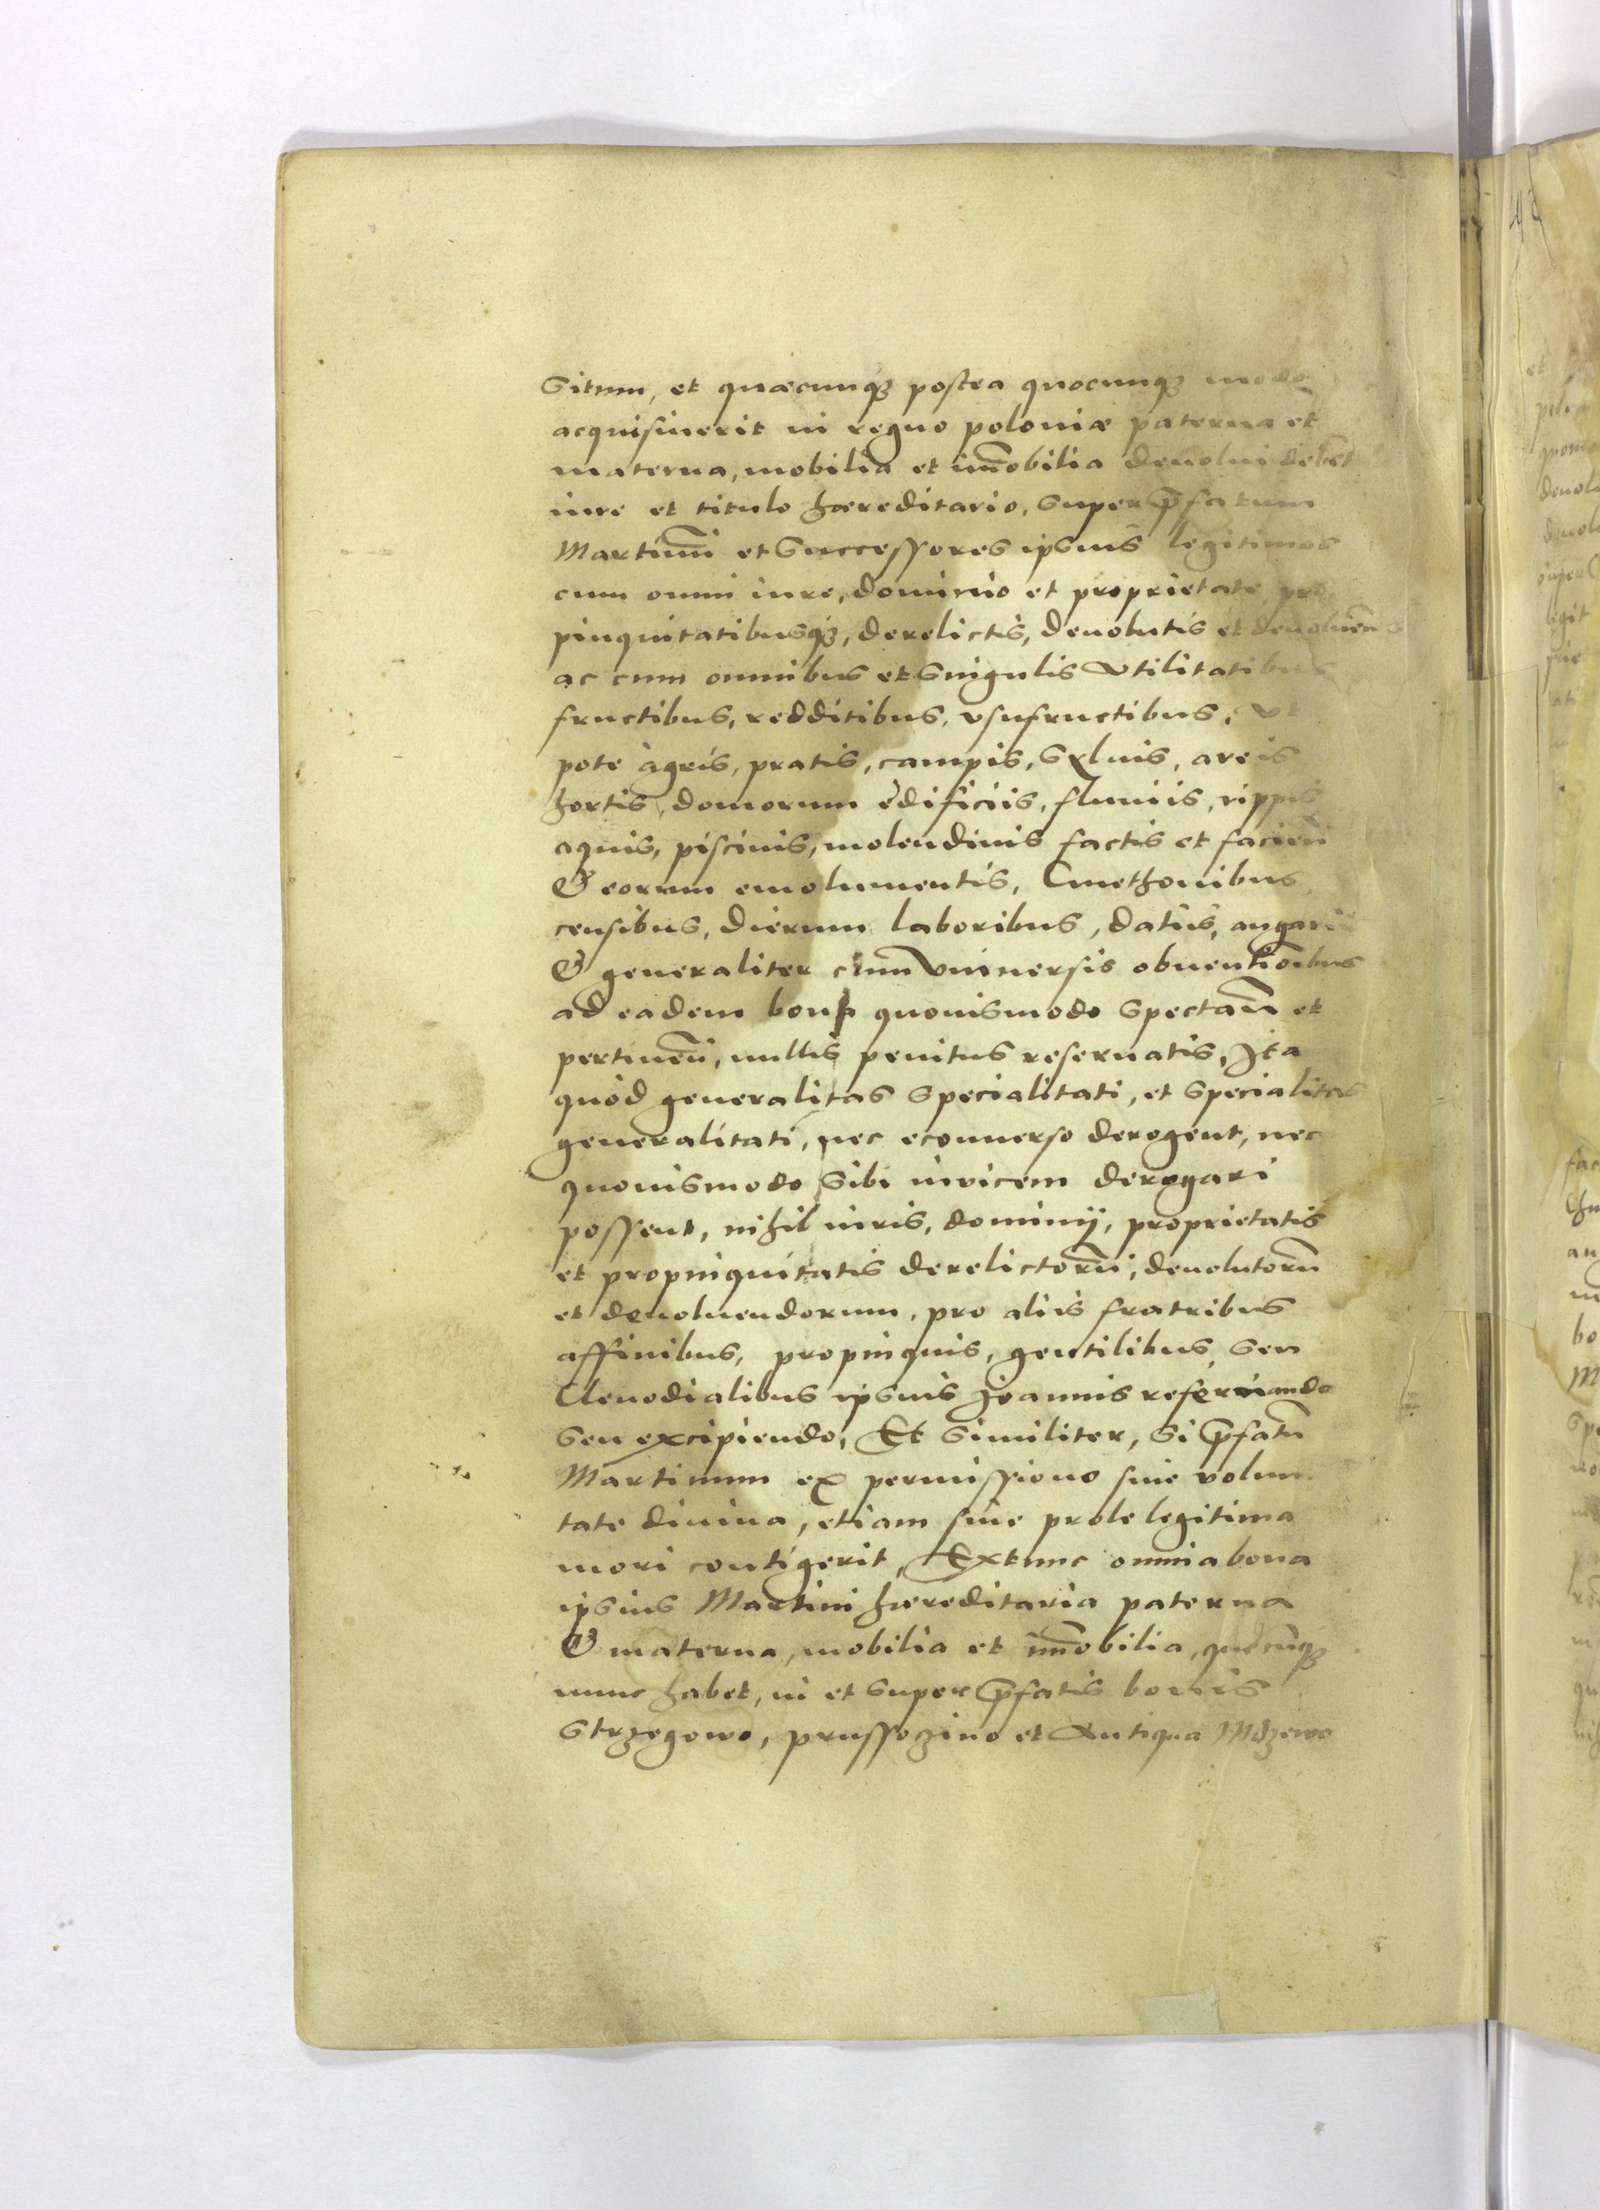 situm, et quæcunqꝫ postea quocunqꝫ modo
acquisiuerit in regno poloniæ paterna et
materna, mobilia et im̄obilia deuolui debēt
iure et titulo hæreditario, super p̄fatum
Martinū et Successores ipsius legitimos
cum omni iure, dominio et proprietate pro
pinquitatibusqꝫ, derelictis, deuolutis et deuoluen̄
ac cum omnibus et singulis vtilitatibus
fructibus, redditibus, vsufructibus, vt
pote àgris, pratis, campis, syluis, areis
hortis, domorum ędificiis, fluuiis, rippis
aquis, piscinis, molendinis factis et facien̄
& eorum emolumentis, Cmethonibus
censibus, dierum laboribus, datiis, angariis
& generaliter cum vniuersis obuentionibus
ad eadem bona quouismodo spectan̄ et
pertinen̄, nullis penitus reseruatis, Ita
quòd generalitas specialitati, et specialitas
generalitati, nec econuerso derogent, nec
quouismodo sibi inuicem derogari
possent, nihil iuris, dominij, proprietatis
et propinquitatis derelictorū, deuolutorū
et deuoluendorum, pro aliis fratribus
affinibus, propinquis, gentilibus, seu
Clenodialibus ipsius Joannis reseruando
seu excipiendo, Et similiter, si p̄fatū
Martinum ex permissione siue volun
tate diuina, etiam sine prole legitima
mori contigerit, Extunc omnia bona
ipsius Martini hæreditaria paterna
& materna, mobilia et im̄obilia, quæcūqꝫ
nunc habet, in et super p̄fatis bonis
Strzegowo, prussoczino et Antiqua Mdzewo